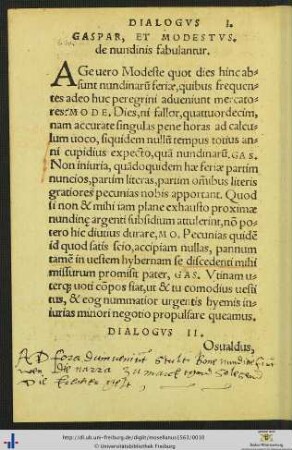 DIALOGVS I.
GASPAR, ET MODESTVS.
de nundinis fabulantur.
AGeuero Modeste quot dies hinc ab-
sunt nundinarũ feriæ, quibus frequen
tes adeo huc peregrini adueniunt mercato
res: MODE. Dies, ni fallor, quattuordecim,
nam accurate singulas pene horas ad calcu
lum uoco, siquidem nullũ tempus totius an
ni cupidius expecto, quā nundinarũ. GAS.
Non iniuria, quādoquidem hæ feriæ partim
nuncios, partim literas, partim om̃ibus literis
gratiores pecunias nobis apportant. Quod
si non & mihi iam plane exhausto proximæ
nundinę argenti subsidium attulerint, nō po
tero hic diutius durare, MO. Pecunias quidẽ
id quod satis scio, accipiam nullas, pannum
tamẽ in uestem hybernam se discedenti mihi
missurum promisit pater, GAS. Vtinam u-
terq; uoti cōpos fiat, ut & tu comodius uesti
tus, & eog nummatior urgentis hyemis in-
iurias minori negotio propulsare queamus.
DIALOGVS II.
Osualdus,
AD fora dum veniunt stulti
Die narra zu marck
Die
http://dl.ub.uni-freiburg.de/diglit/mosellanus1563/0010
© Universitätsbibliothek Freiburg